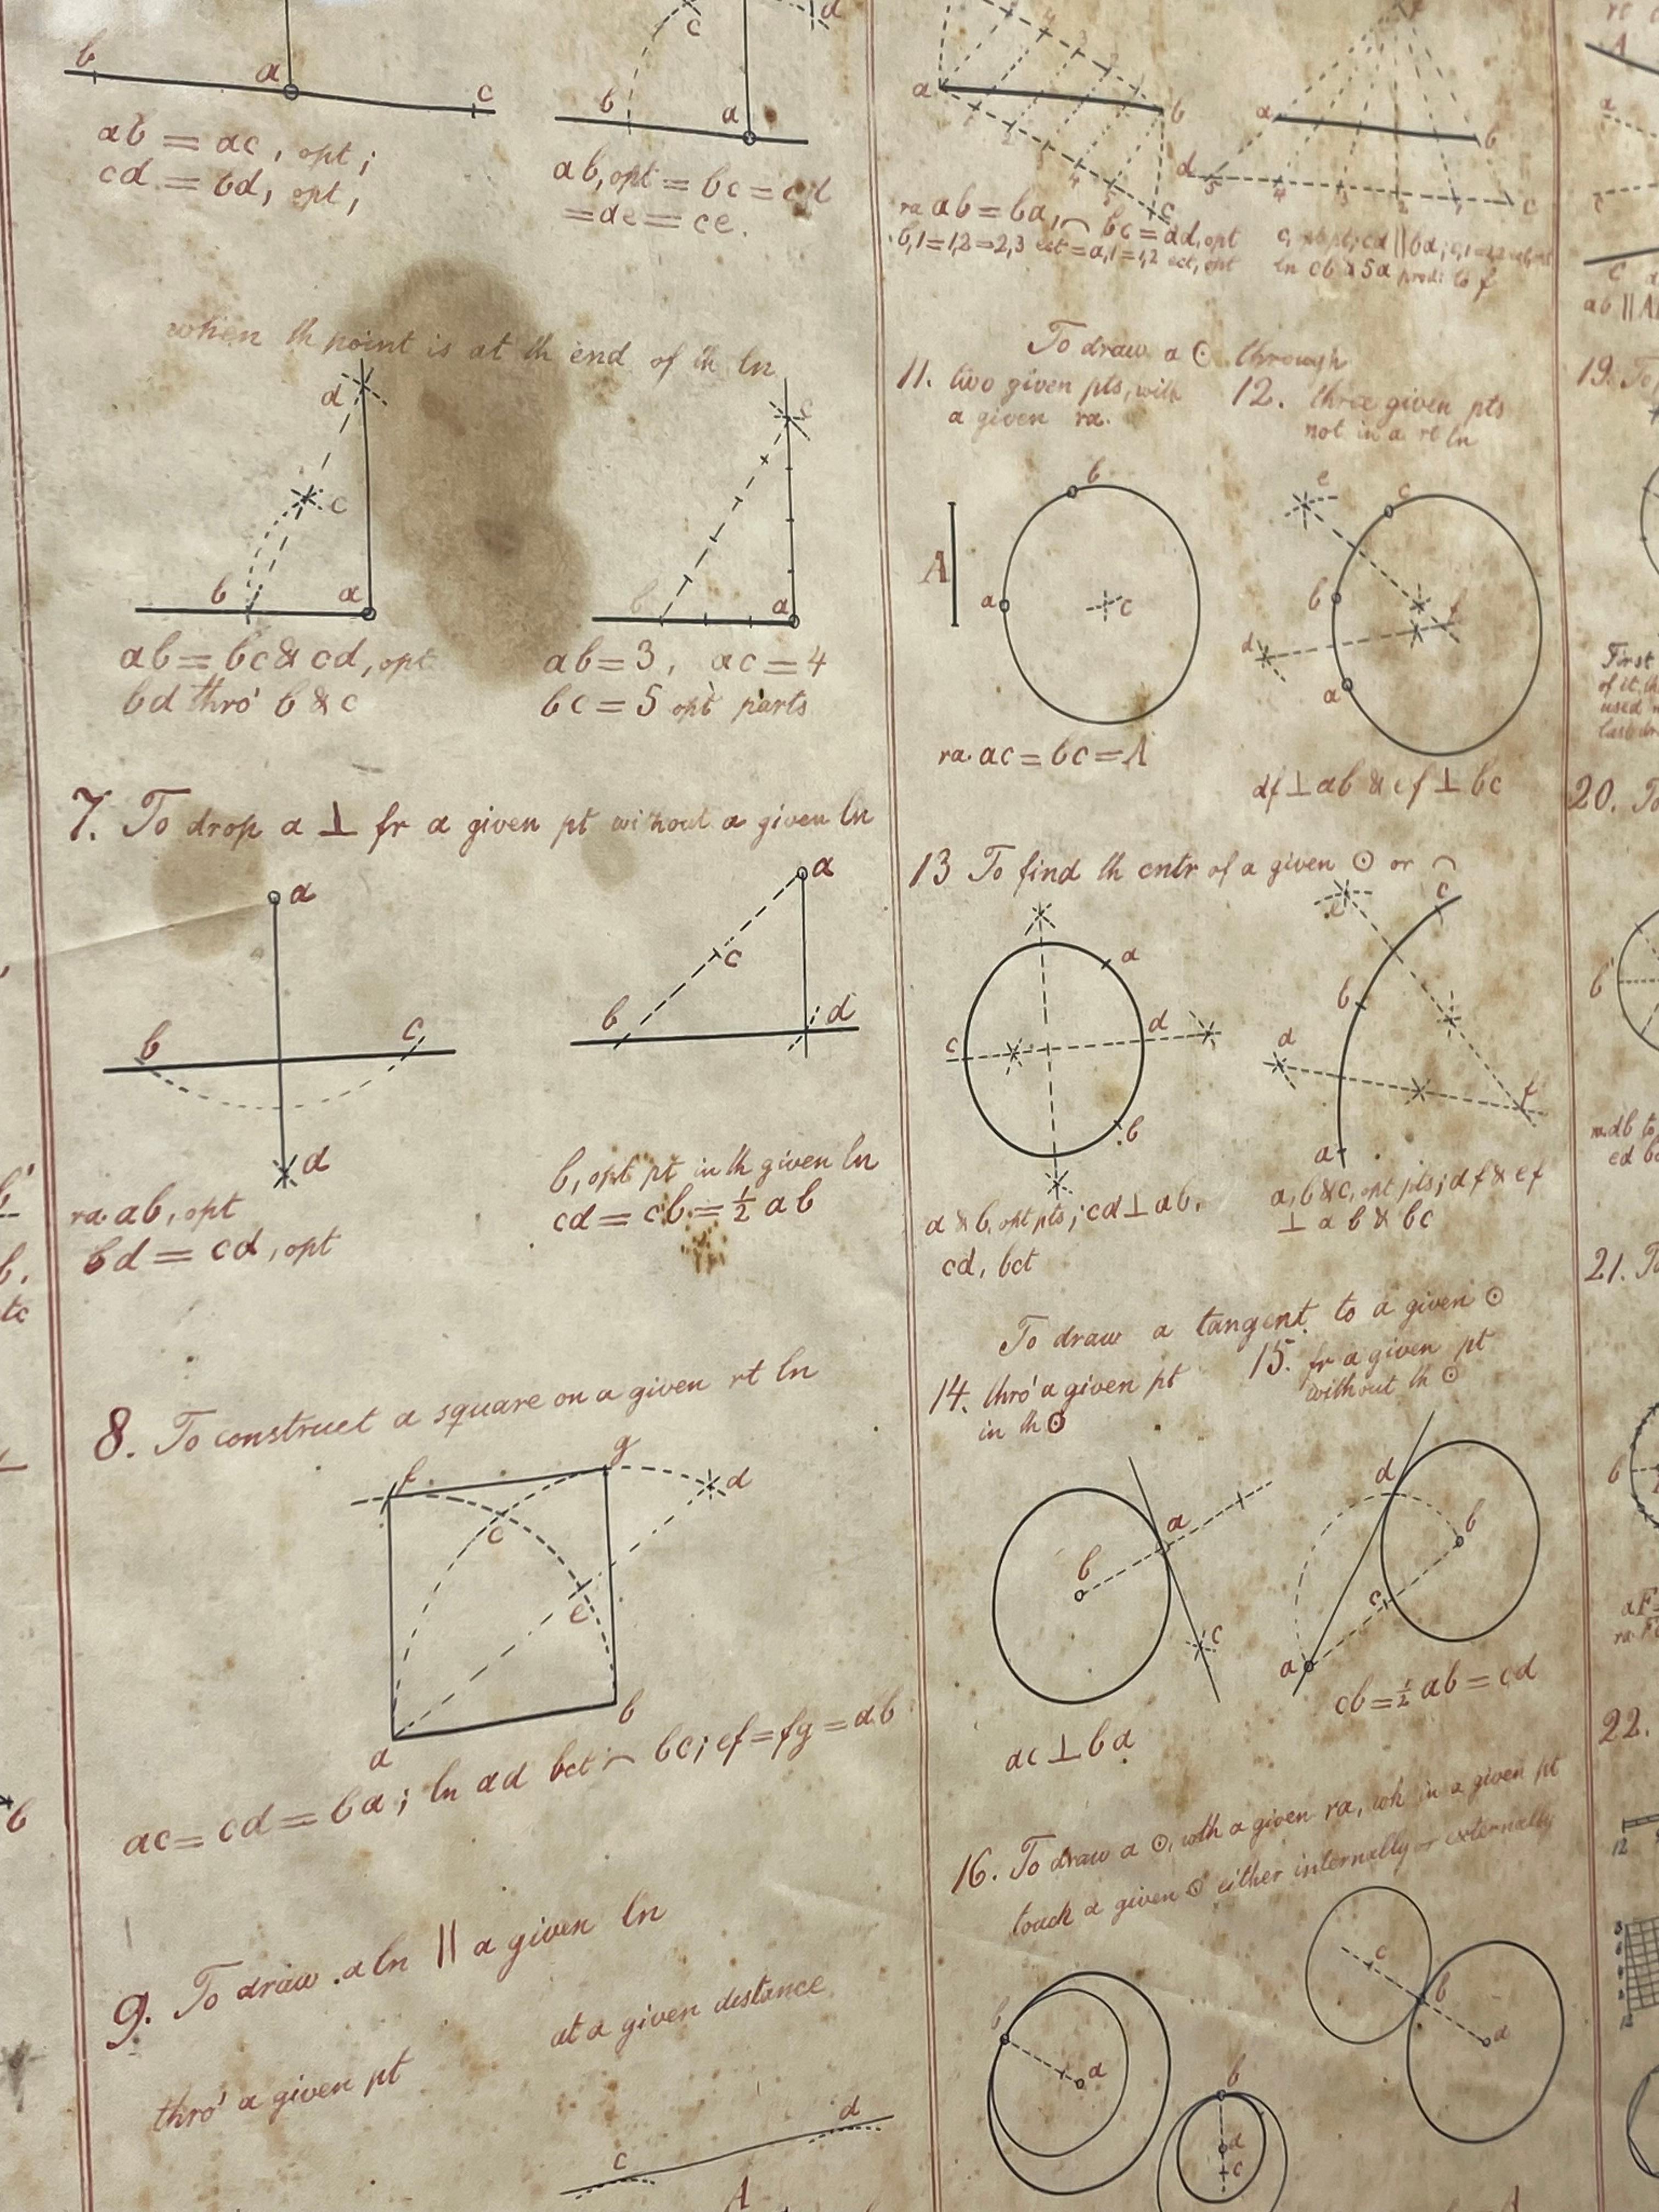 b a c
ab = ac, opt;
cd = bd, opt,
c d
b a
ab, opt = bc = cd
= de = ce.
when th point is at th end of th ln
d
c
b a
ab = bc & cd, opt
bd thro' b & c
c
b a
ab = 3, ac = 4
bc = 5 opt parts
7. To drop a ⊥ fr a given pt without a given ln
a
b c
d
ra ab, opt
bd = cd, opt
a
c
b d
b, opt pt in th given ln
cd = cb = ½ ab
8. To construct a square on a given rt ln
f g d
c
e
a b
ac = cd = ba; ln ad bct ⌒ bc; ef = fg = ab
9. To draw a ln || a given ln
thro' a given pt
at a given distance
c d
A
a b
c
ra ab = ba, ⌒ bc = ad, opt
b,1 = 1,2 = 2,3 ect = a,1 = 1,2 ect, opt
a b
d 5 4 3 2 1 c
cd || ba;
ln cb & 5a prod: to f
To draw a ⊙ through
11. two given pts, with
a given ra.
12. three given pts
not in a rt ln
b
A
a c
ra ac = bc = A
e c
b f
d
a
df ⊥ ab & ef ⊥ bc
13 To find th cntr of a given ⊙ or ⌒
a
c d
b
a & b, opt pts; cd ⊥ ab,
cd, bct
e c
b
d
f
a
a, b & c, opt pts; df & ef
⊥ ab & bc
To draw a tangent to a given ⊙
14. thro' a given pt
in th ⊙
15. fr a given pt
without th ⊙
a
b
c
ac ⊥ ba
d
b
c
a
cb = ½ ab = cd
16. To draw a ⊙, wth a given ra, wh in a given pt
touch a given ⊙ either internally or externally
b
a
b
a
c
c
b
a
A
A
c
ab ||
19. To
First
of it, th
used
20. To
b
db to
21. To
b
22.
12
b